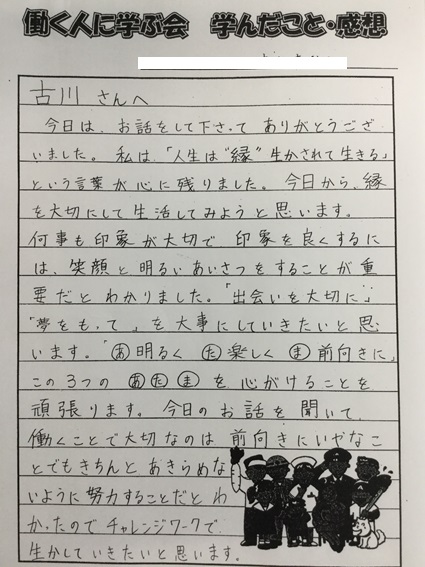 働く人に学ぶ会　学んだこと・感想
古川さんへ
今日は、お話をして下さって ありがとうござ
いました。私は、「人生は"縁"生かされて生きる」
という言葉が心に残りました。今日から、縁
を大切にして生活してみようと思います。
何事も印象が大切で 印象を良くするに
は、笑顔と明るいあいさつをすることが重
要だとわかりました。「出会いを大切に」
「夢をもって」を大事にしていきたいと思
います。「あ明るく た楽しく ま前向きに」
この3つの あたま を心がけることを
頑張ります。今日のお話を聞いて、
働くことで大切なのは 前向きにいやなこ
とでもきちんとあきらめな
いように努力することだとわ
かったのでチャレンジワークで
生かしていきたいと思います。